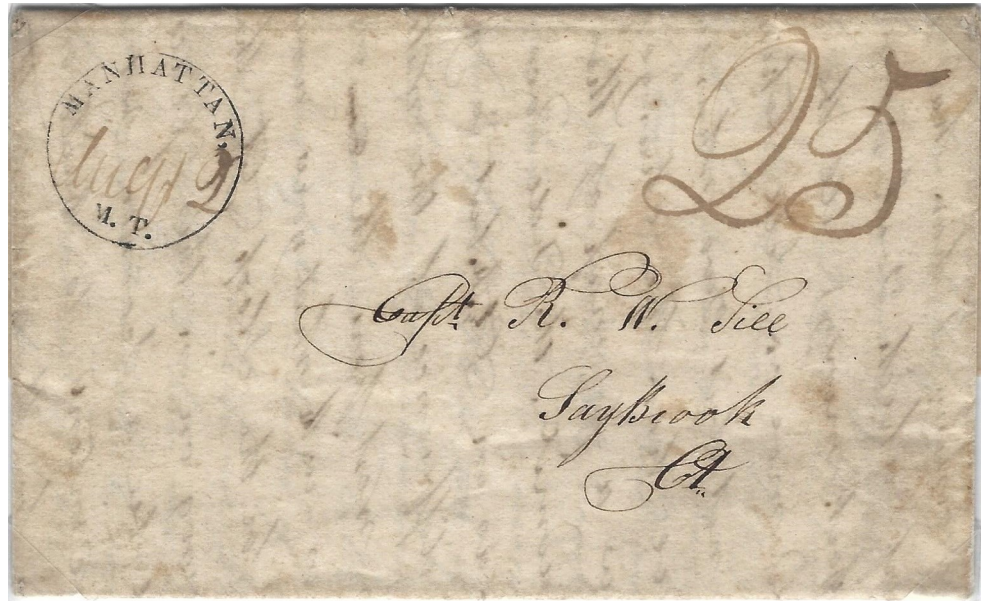 MANHATTAN,
Augt 2
M. T.
25
Capt. R. W. Sill
SayBrook
Ct.